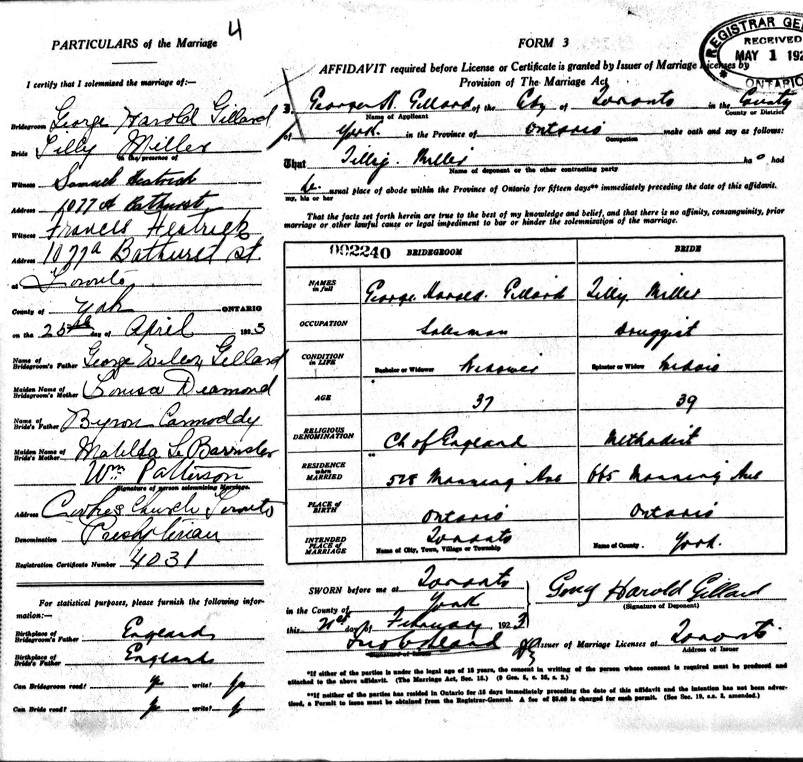 4
PARTICULARS of the Marriage
I certify that I solemnized the marriage of:—
Bridegroom George Harold Gillard
Bride Tilly Miller
in the presence of
Witness Samuel Heatrick
Address 1077A Bathurst
Witness Francis Heatrick
Address 1077a Bathurst St
at Toronto
County of York ONTARIO
on the 25th day of April 1923
Name of Bridegroom's Father George Wilson Gillard
Maiden Name of Bridegroom's Mother Louisa Deamond
Name of Bride's Father Byron Carmoddy
Maiden Name of Bride's Mother Matilda Le
Wm Patterson
Signature of person solemnizing Marriage.
Address Cookes Church Toronto
Denomination Presbyterian
Registration Certificate Number 4031
For statistical purposes, please furnish the following infor-
mation:—
Birthplace of Bridegroom's Father England
Birthplace of Bride's Father England
Can Bridegroom read? write?
Can Bride read? write?
REGISTRAR GEN
RECEIVED
MAY 1 192
ONTARIO
FORM 3
AFFIDAVIT required before License or Certificate is granted by Issuer of Marriage Licenses by
Provision of The Marriage Act
I, George H. Gillard of the City of Toronto in the County
Name of Applicant County or District
of York in the Province of Ontario make oath and say as follows:
Occupation
That Tilly Miller ha had
Name of deponent or the other contracting party
usual place of abode within the Province of Ontario for fifteen days** immediately preceding the date of this affidavit.
my, his or her
That the facts set forth herein are true to the best of my knowledge and belief, and that there is no affinity, consanguinity, prior
marriage or other lawful cause or legal impediment to bar or hinder the solemnization of the marriage.
002240 BRIDEGROOM BRIDE
NAMES in full George Harold Gillard Tilly Miller
OCCUPATION Salesman Druggist
CONDITION in LIFE Bachelor or Widower Widower Spinster or Widow Widow
AGE 37 39
RELIGIOUS DENOMINATION Ch of England Methodist
RESIDENCE when MARRIED 528 Manning Ave 665 Manning Ave
PLACE of BIRTH Ontario Ontario
INTENDED PLACE of MARRIAGE Toronto York.
Name of City, Town, Village or Township Name of County
SWORN before me at Toronto
in the County of York
this day of February 1923
Signature of Issuer
Geo Harold Gillard
(Signature of Deponent)
Issuer of Marriage Licenses at Toronto.
Address of Issuer
*If either of the parties is under the legal age of 18 years, the consent in writing of the person whose consent is required must be produced and
attached to the above affidavit. (The Marriage Act, Sec. 15.) (9 Geo. 5, c. 35, s. 2.)
**If neither of the parties has resided in Ontario for 15 days immediately preceding the date of this affidavit and the intention has not been adver-
tised, a Permit to issue must be obtained from the Registrar-General. A fee of $5.00 is charged for such permit. (See Sec. 19, s.s. 3, amended.)